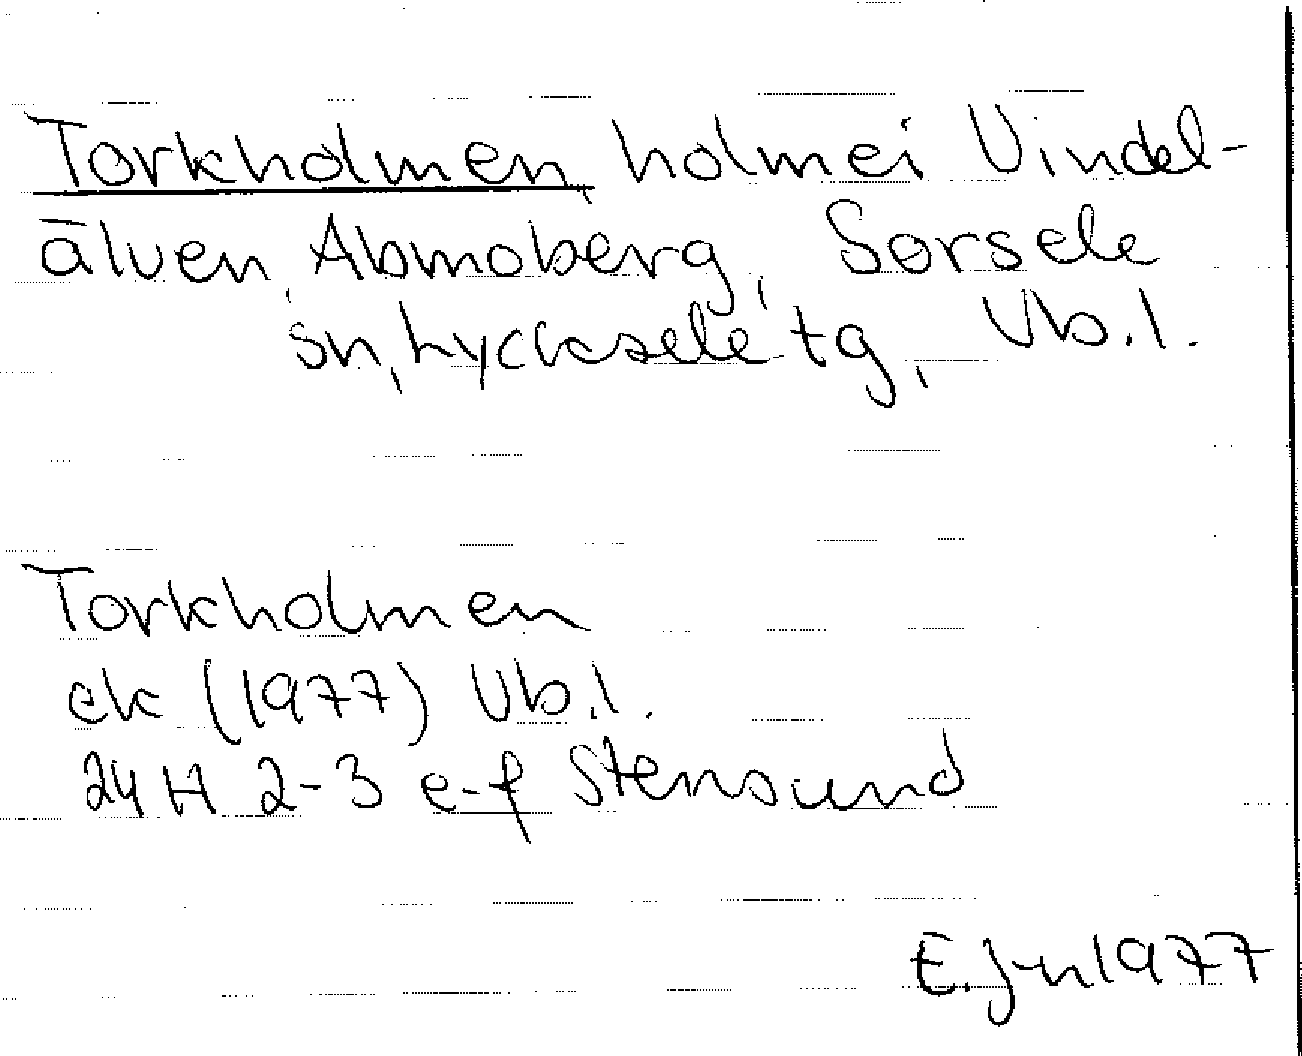 Torkholmen, holme i Vindel-
älven, Abmoberg, Sorsele
sn, Lycksele tg, Vb.l.
Torkholmen
ek (1977) Vb.l.
24 H 2-3 e-f Stensund
E.Jn 1977